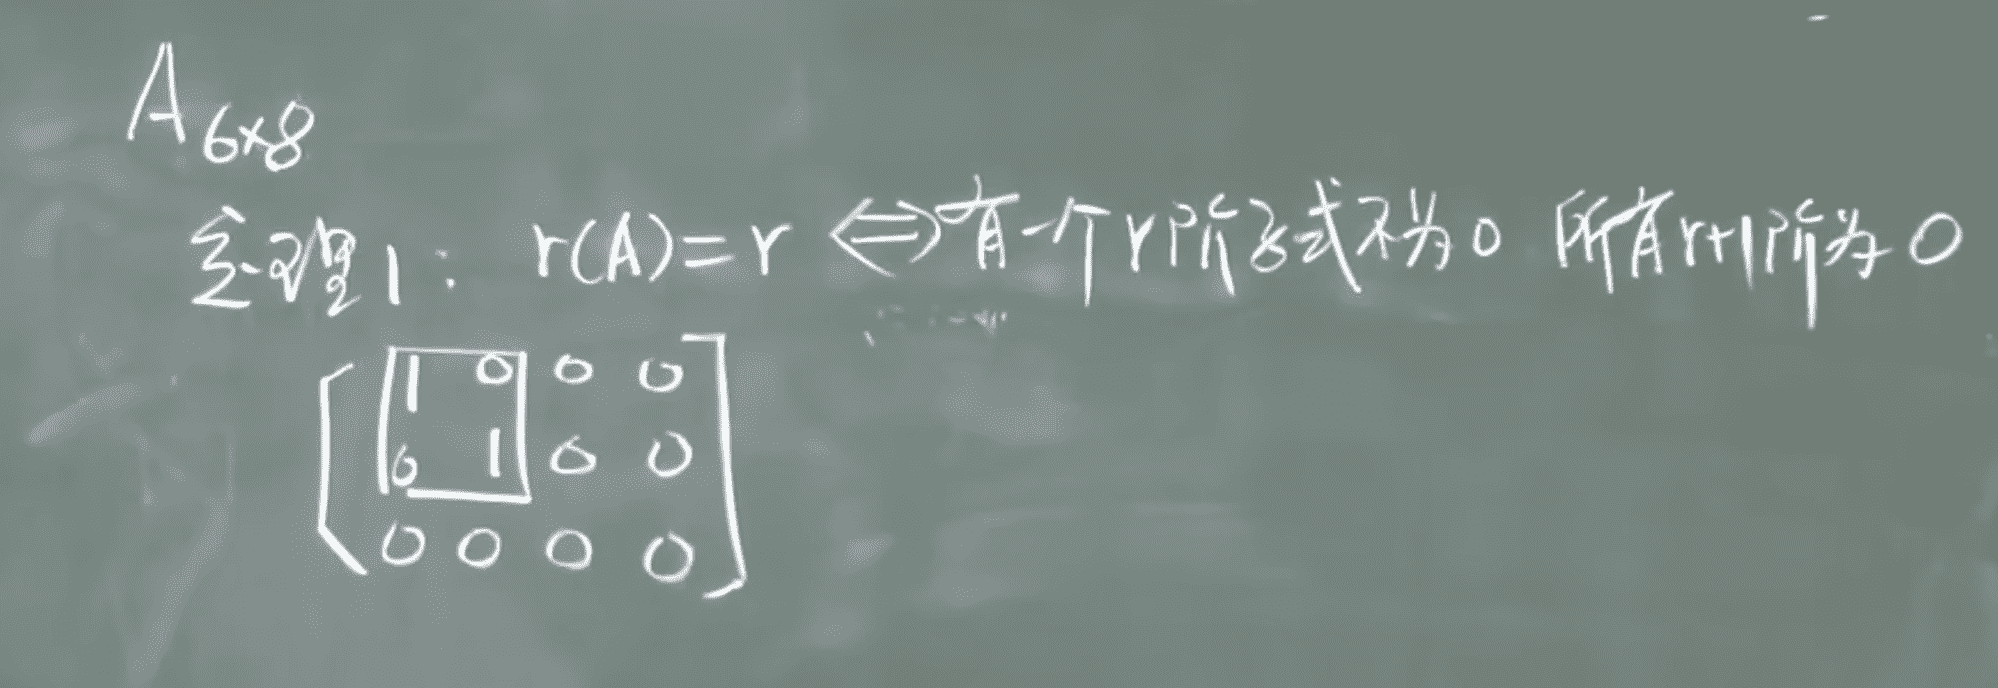 A6×8
定理1: r(A)=r ⇔有一个r阶子式不为0 所有r+1阶为0
1 0 0 0
0 1 0 0
0 0 0 0